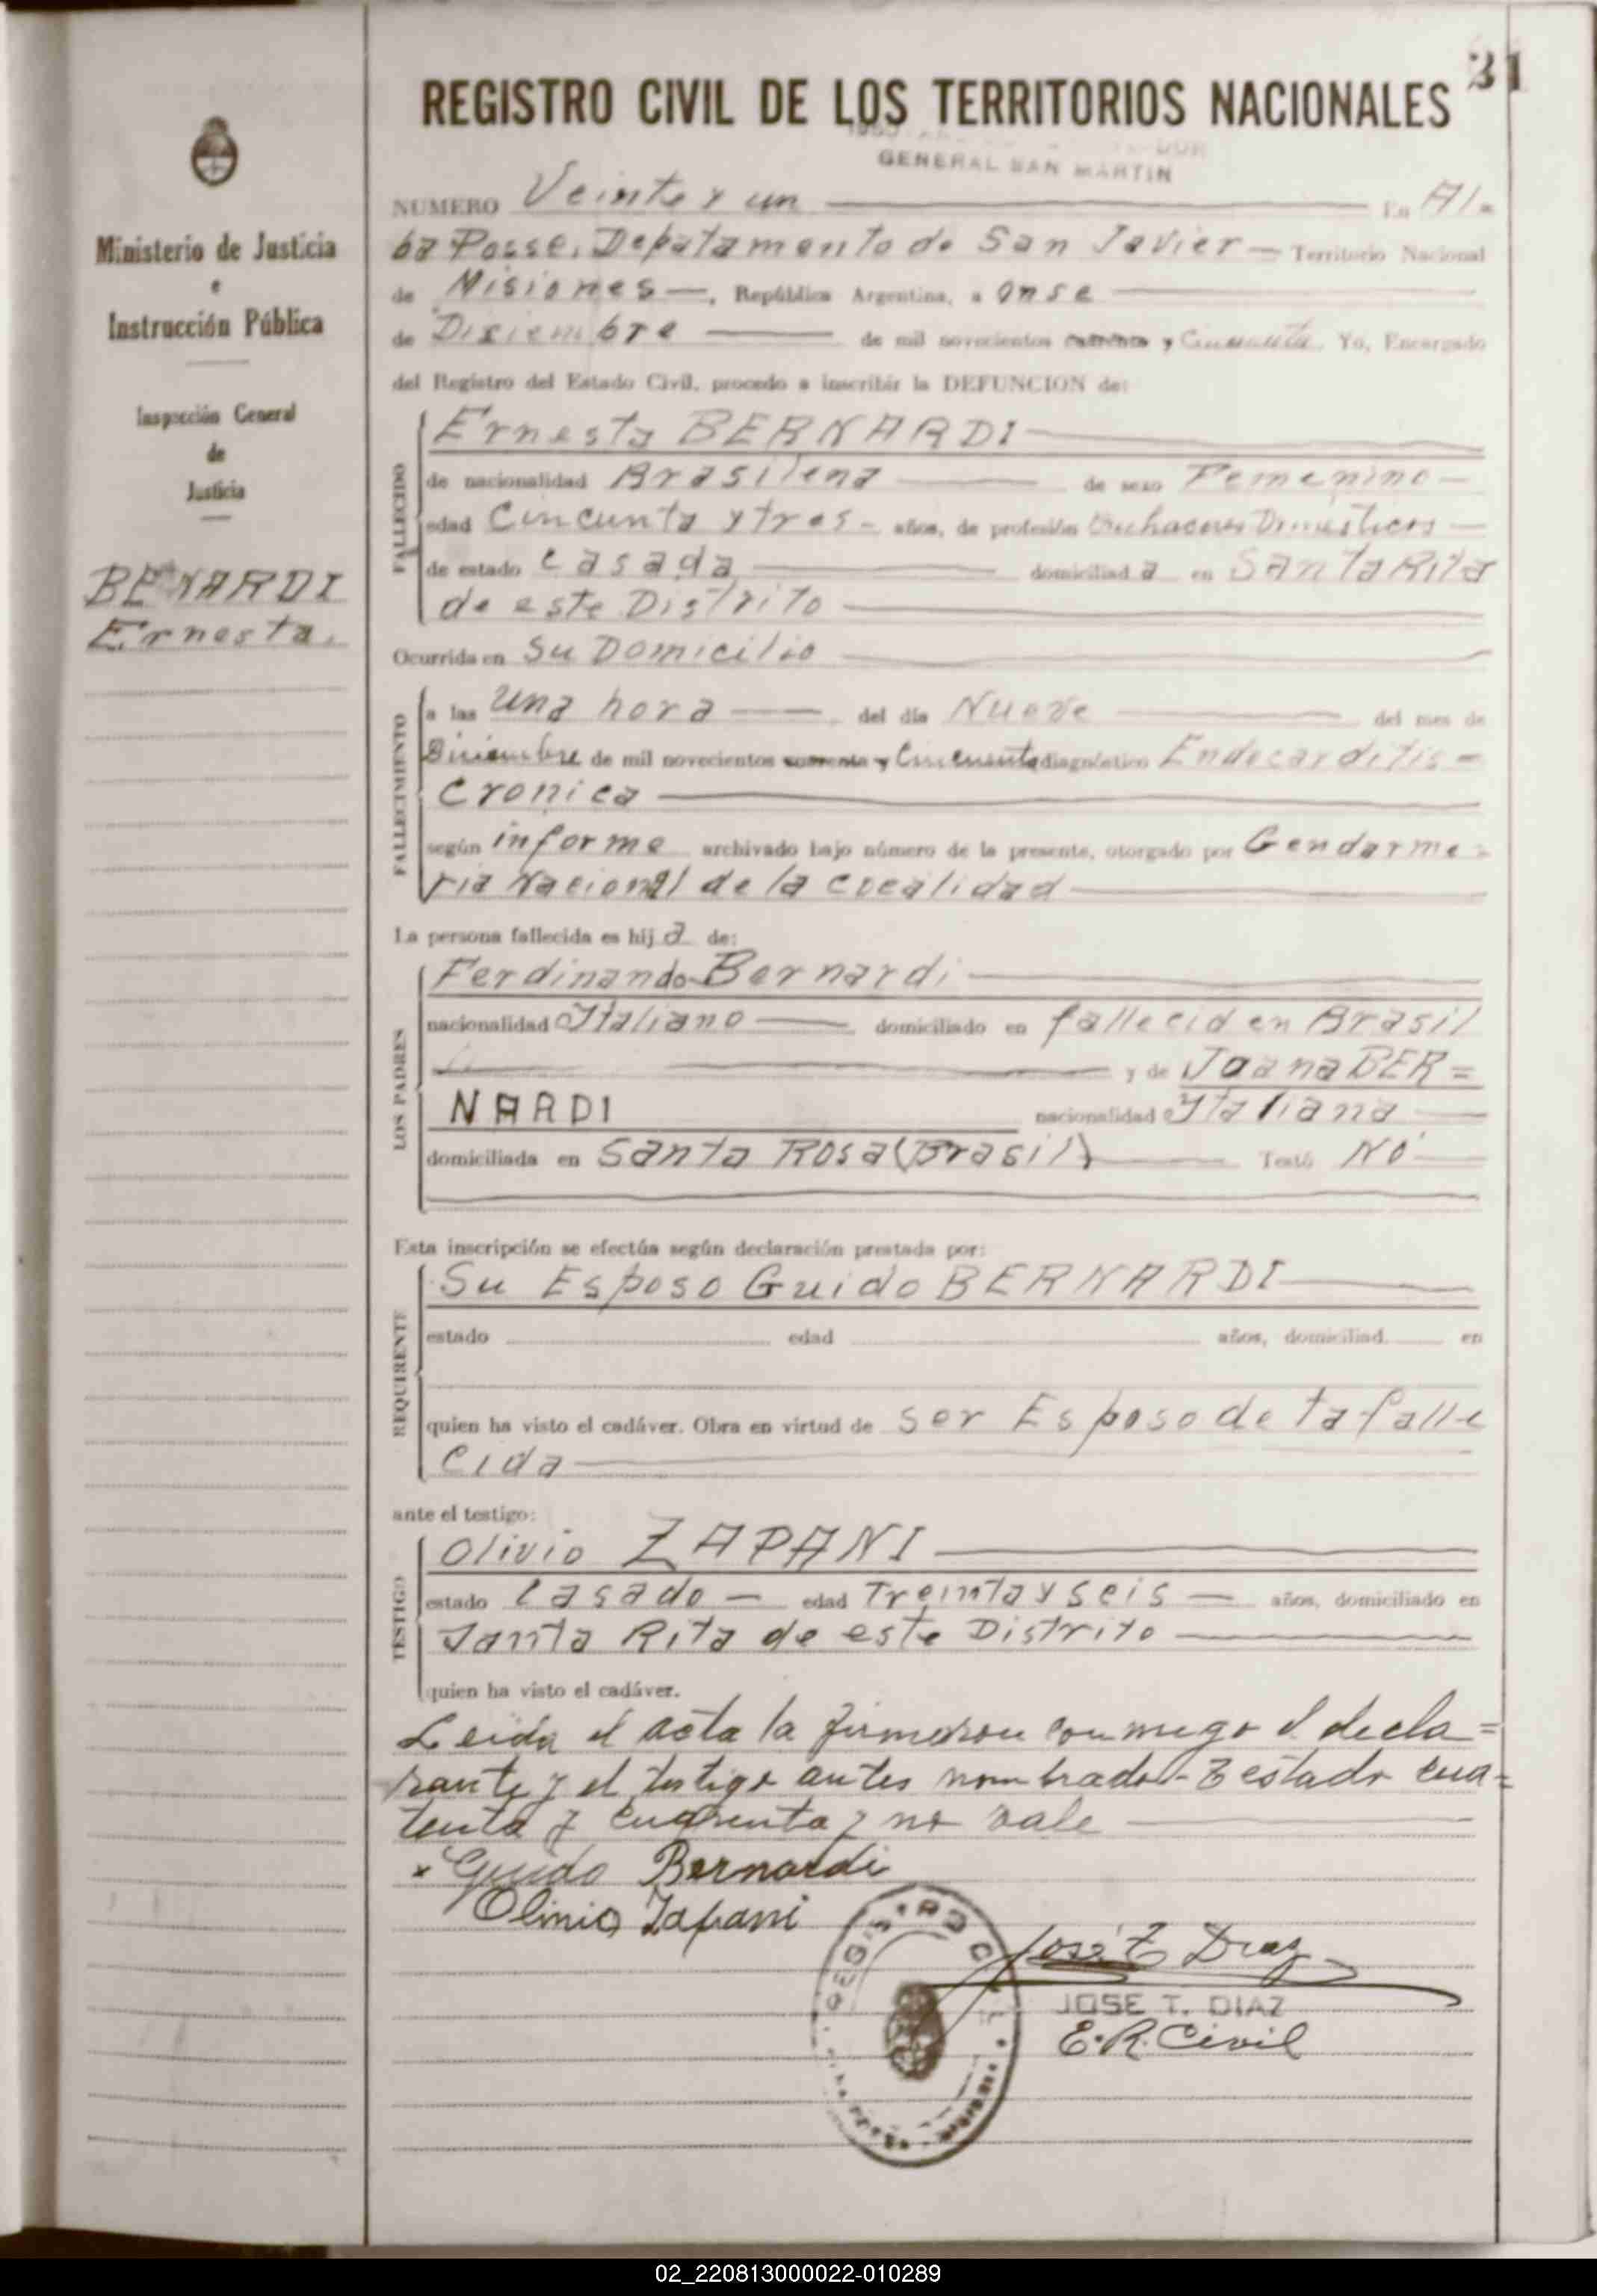 31
REGISTRO CIVIL DE LOS TERRITORIOS NACIONALES
GENERAL SAN MARTIN
Ministerio de Justicia
e
Instrucción Pública
Inspección General
de
Justicia
BENARDI
Ernesta.
NUMERO Veinte y un En Al-
ba Posse, Depatamento de San Javier — Territorio Nacional
de Misiones —, República Argentina, a onse
de Disiembre de mil novecientos cuarenta y Cincuenta. Yo, Encargado
del Registro del Estado Civil, procedo a inscribir la DEFUNCION de:
FALLECIDO
Ernesta BERNARDI
de nacionalidad Brasilena de sexo Femenino —
edad Cincunta y tres - años, de profesión Quehaceres Domésticos
de estado casada domiciliad a en Santa Rita
de este Distrito
Ocurrida en Su Domicilio
FALLECIMIENTO
a las Una hora del día Nueve del mes de
Diciembre de mil novecientos cuarenta y Cincuenta diagnóstico Endocarditis -
cronica
según informe archivado bajo número de la presente, otorgado por Gendarme-
ria Nacional de la localidad
La persona fallecida es hij a de:
LOS PADRES
Ferdinando Bernardi
nacionalidad Italiano domiciliado en fallecid en Brasil
y de Joana BER=
NARDI nacionalidad Italiana
domiciliada en Santa Rosa (Brasil) Testó NO
Esta inscripción se efectúa según declaración prestada por:
REQUIRENTE
Su Esposo Guido BERNARDI
estado edad años, domiciliad en
quien ha visto el cadáver. Obra en virtud de ser Esposo de la falle
cida
ante el testigo:
TESTIGO
Olivio ZAPANI
estado Casado — edad Treinta y seis — años, domiciliado en
Santa Rita de este Distrito
quien ha visto el cadáver.
Leida el acta la firmaron conmigo el decla=
rante y el testigo antes nombrado - testado cua=
renta y cuarenta y no vale
Guido Bernardi
Olivio Zapani
José T. Diaz
JOSE T. DIAZ
E. R. Civil
02_220813000022-010289